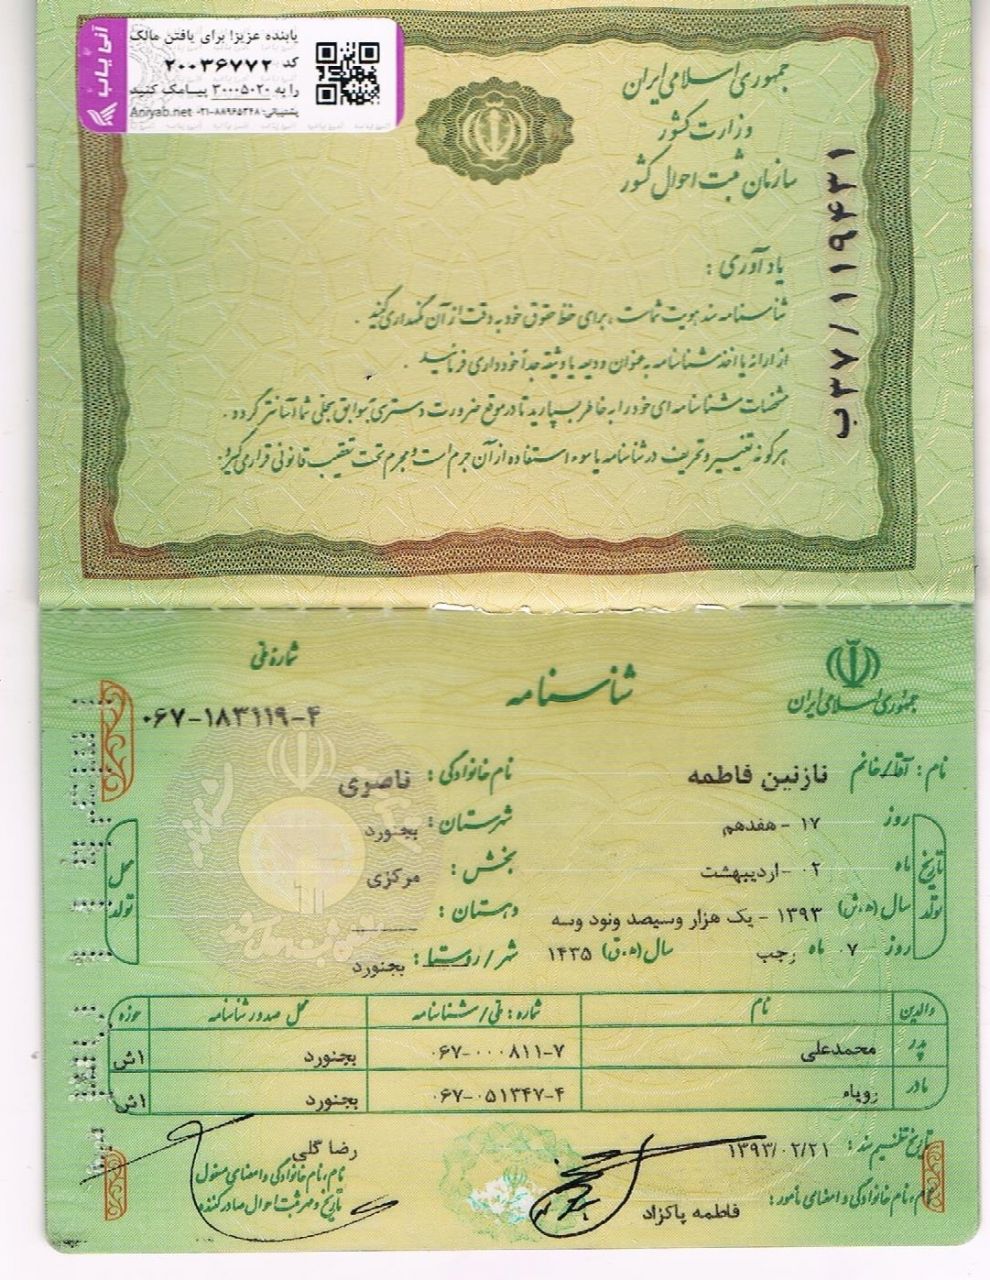 یابنده عزیز! برای یافتن مالک
کد ۲۰۰۳۶۷۷۲
را به ۳۰۰۰۵۰۲۰ پیـامک کنید
پشتیبانی: ۸۸۹۶۵۳۴۸-۰۲۱ Aniyab.net
آنی یاب
جمهوری اسلامی ایران
وزارت کشور
سازمان ثبت احوال کشور
ب۳۷/۱۱۹۴۳۱
یادآوری :
شناسنامه سند هویت شماست ، برای حفظ حقوق خود به دقت از آن نگهداری کنید .
از ارائه یا اخذ شناسنامه به عنوان ودیعه یا وثیقه جداً خودداری فرمائید .
مشخصات شناسنامه ای خود را به خاطر بسپارید تا در موقع ضرورت دسترسی به سوابق سجلی شما آسانتر گردد .
هرگونه تغییر و تحریف در شناسنامه یا سوء استفاده از آن جرم است و مجرم تحت تعقیب قانونی قرار می گیرد .
جمهوری اسلامی ایران
شناسنامه
شماره ملی
۰۶۷-۱۸۳۱۱۹-۴
نام : آقا/خانم نازنین فاطمه
نام خانوادگی : ناصری
تاریخ تولد
روز ۱۷ - هفدهم
ماه ۰۲ -اردیبهشت
سال (ه.ش) ۱۳۹۳ - یک هزار وسیصد ونود وسه
روز ۰۷ ماه رجب سال (ه.ق) ۱۴۳۵
محل تولد
شهرستان : بجنورد
بخش : مرکزی
دهستان : ـــــــــ
شهر/روستا : بجنورد
والدین نام شماره : ملی/شناسنامه محل صدور شناسنامه حوزه
پدر محمدعلی ۰۶۷-۰۰۰۸۱۱-۷ بجنورد ۱ش
مادر رویاه ۰۶۷-۰۵۱۳۴۷-۴ بجنورد ۱ش
تاریخ تنظیم سند : ۱۳۹۳/۰۲/۲۱
نام ، نام خانوادگی و امضای مأمور : فاطمه پاکزاد
رضا گلی
نام ، نام خانوادگی و امضای مسئول
تاریخ و مهر ثبت احوال صادرکننده